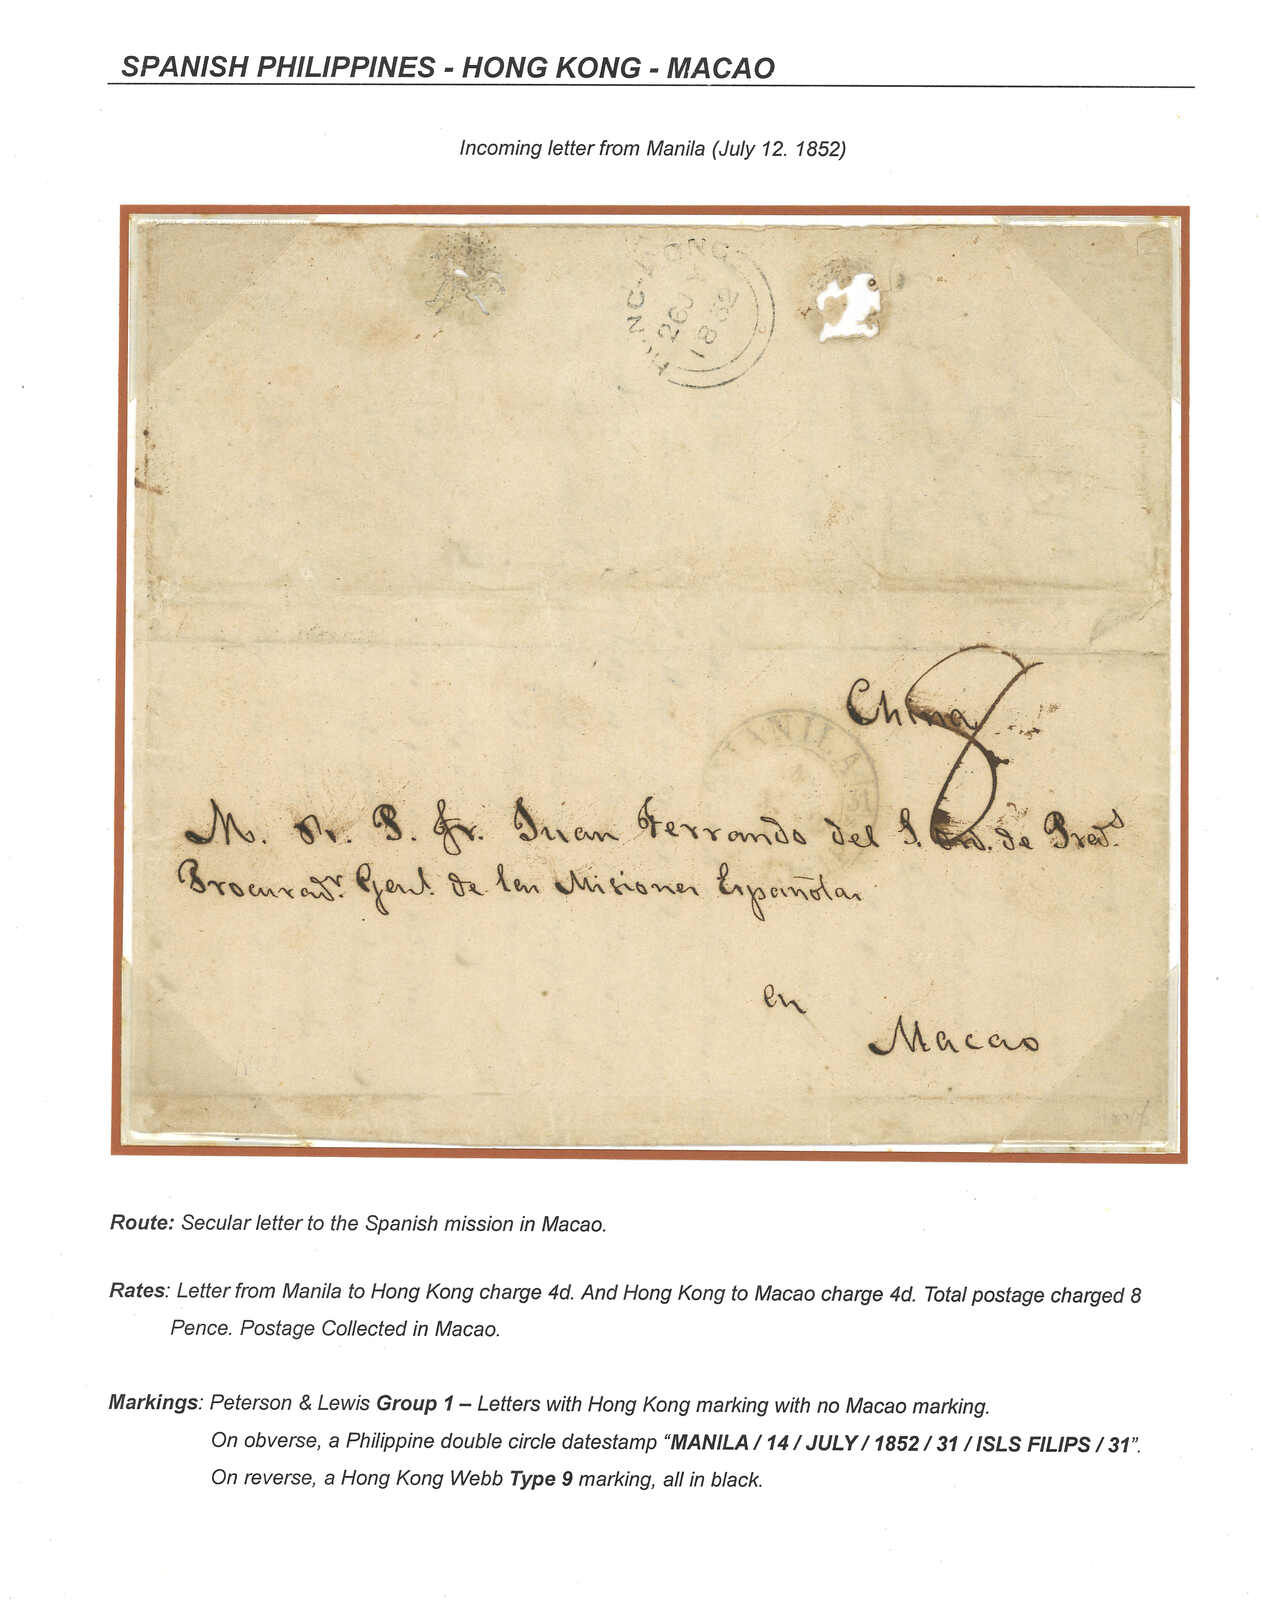 SPANISH PHILIPPINES - HONG KONG - MACAO
Incoming letter from Manila (July 12. 1852)
HONG-KONG
26 JY
1852
China
8
MANILA
31
M. R. P. Fr. Juan Ferrando del S. Ord. de Pred.s
Procurad.r Genl. de las Misiones Españolas
en
Macao
Route: Secular letter to the Spanish mission in Macao.
Rates: Letter from Manila to Hong Kong charge 4d. And Hong Kong to Macao charge 4d. Total postage charged 8
Pence. Postage Collected in Macao.
Markings: Peterson & Lewis Group 1 – Letters with Hong Kong marking with no Macao marking.
On obverse, a Philippine double circle datestamp “MANILA / 14 / JULY / 1852 / 31 / ISLS FILIPS / 31”.
On reverse, a Hong Kong Webb Type 9 marking, all in black.